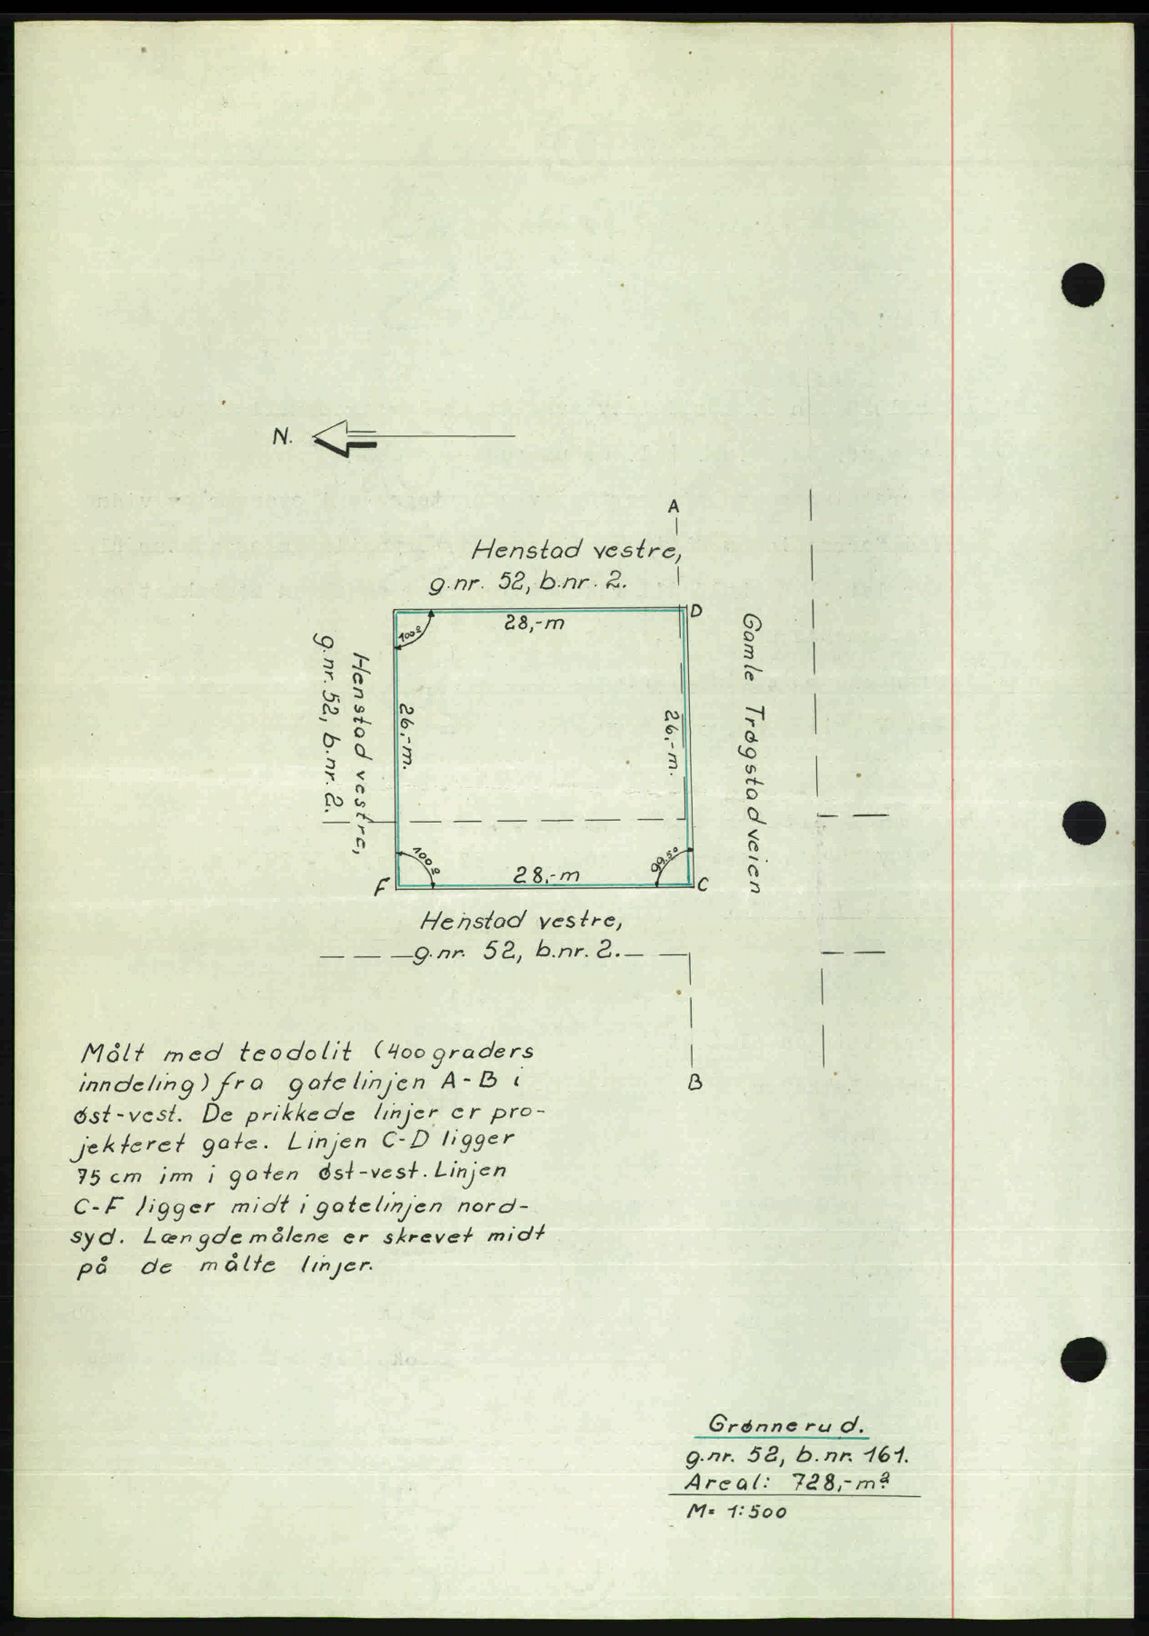 N.
A
Henstad vestre,
g.nr. 52, b.nr. 2.
D
28,-m
100g
Henstad vestre,
g.nr. 52, b.nr. 2.
26,-m.
26,-m.
Gamle Trøgstadveien
100g
99.50
F
28,-m
C
Henstad vestre,
g.nr. 52, b.nr. 2.
B
Målt med teodolit (400graders
inndeling) fra gatelinjen A-B i
øst-vest. De prikkede linjer er pro-
jekteret gate. Linjen C-D ligger
75 cm inn i gaten øst-vest. Linjen
C-F ligger midt i gatelinjen nord-
syd. Længdemålene er skrevet midt
på de målte linjer.
Grønnerud.
g.nr. 52, b.nr. 161.
Areal: 728,-m².
M= 1:500